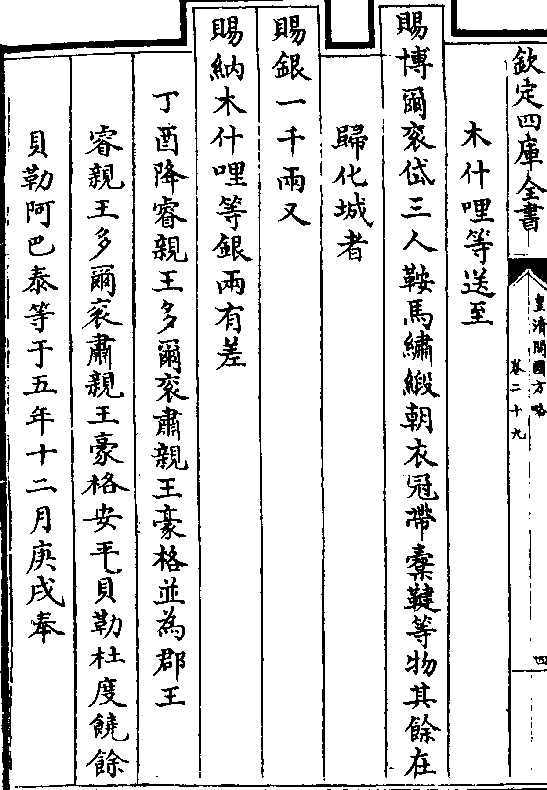 欽定四庫全書
皇清開國方略
卷二十九
四
木什哩等送至
賜博爾衮岱三人鞍馬繡緞朝衣冠帶櫜鞬等物其餘在
歸化城者
賜銀一千兩又
賜納木什哩等銀兩有差
丁酉降睿親王多爾衮肅親王豪格並為郡王
睿親王多爾衮肅親王豪格安平貝勒杜度饒餘
貝勒阿巴泰等于五年十二月庚戌奉